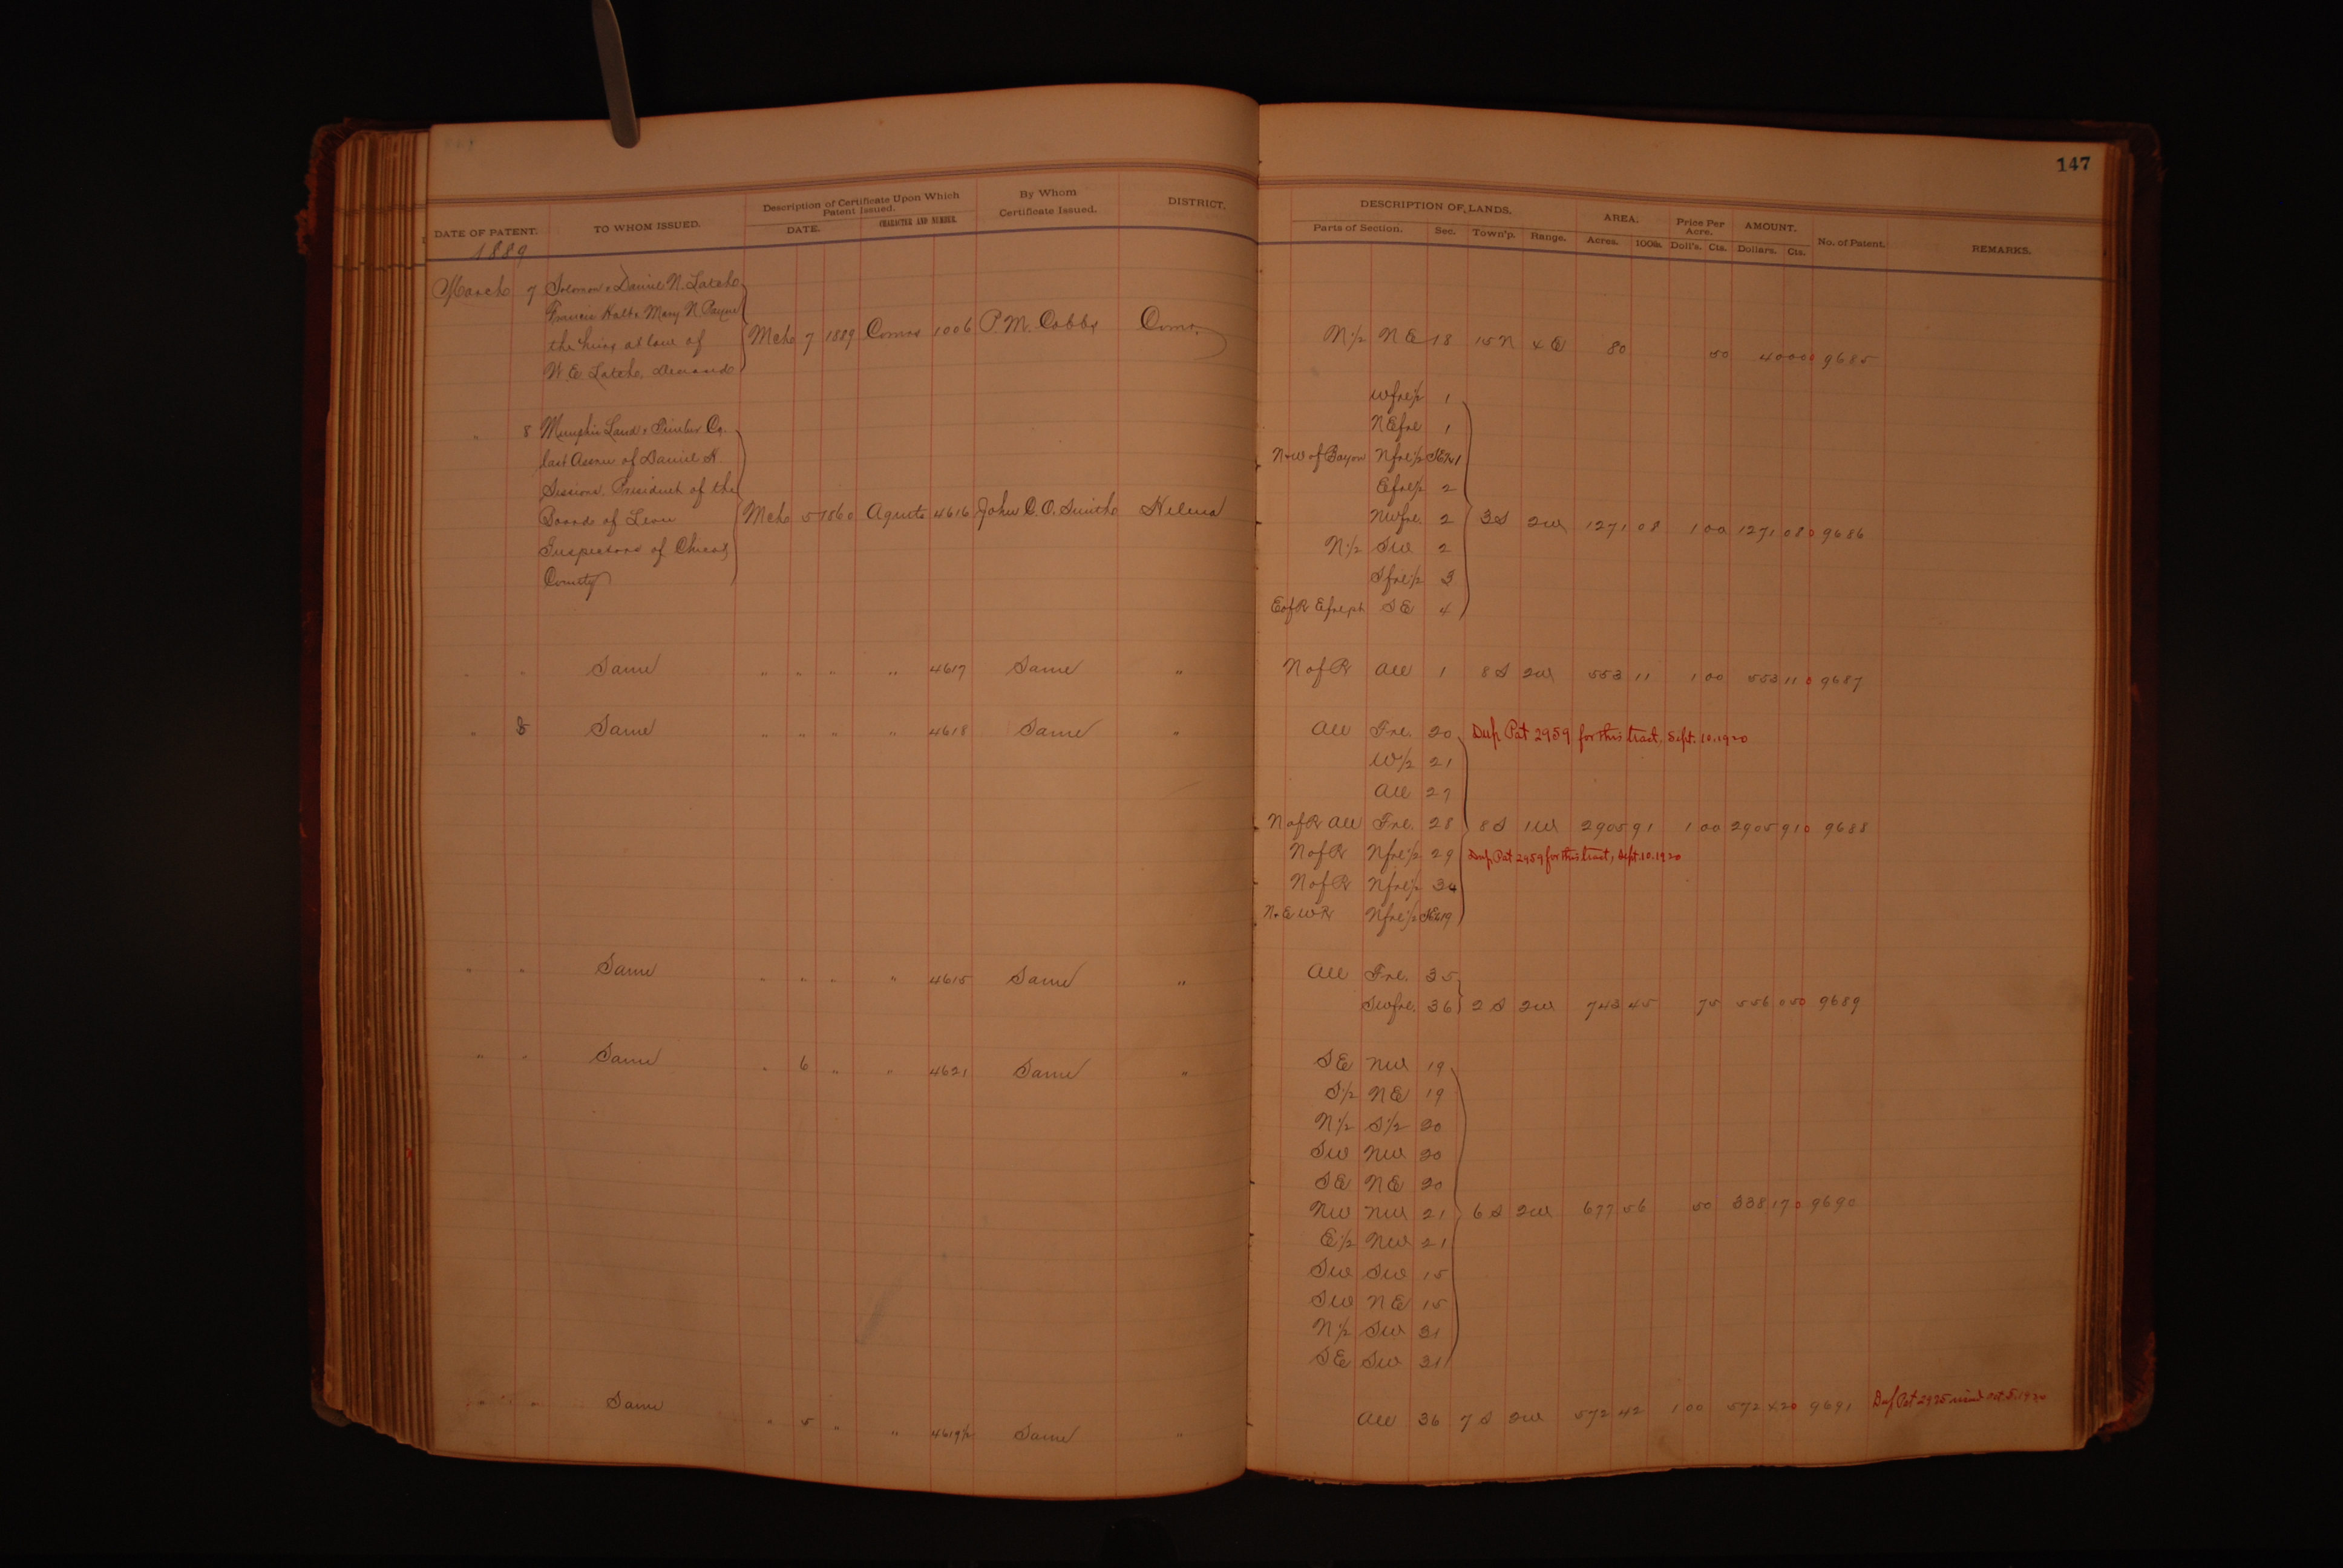 147
DATE OF PATENT. TO WHOM ISSUED. Description of Certificate Upon Which Patent Issued. DATE. CHARACTER AND NUMBER. By Whom Certificate Issued. DISTRICT. DESCRIPTION OF LANDS. Parts of Section. Sec. Town'p. Range. AREA. Acres. 100ths. Price Per Acre. Doll's. Cts. AMOUNT. Dollars. Cts. No. of Patent. REMARKS.
1889
March 7 Solomon & Daniel N. Latch
Francis Holt & Mary N. Payne
the heirs at law of Mch 7 1889 Comrs 1006 P. M. Cobbs Comr. N 1/2 NE 18 15 N 4 E 80 50 40 00 0 9685
W. E. Latch
W frl 1/2 1
" 8 Memphis Land & Timber Co. NE frl 1
last Assnee of Daniel H. N & W of Bayou N frl 1/2 SE 1/4 1
Sessions. President of the E frl 1/2 2
Board of Levee Mch 5 1860 Agnets 4616 John C. O. Smith Helena NW frl. 2 3 S 2 W 1271 08 1 00 1271 08 0 9686
Inspectors of Chicot N 1/2 SW 2
County S frl 1/2 3
E of R E frl pt SE 4
" " Same " " " " 4617 Same " N of R All 1 8 S 2 W 553 11 1 00 553 11 0 9687
" 8 Same " " " " 4618 Same " All Frl. 20 Dup Pat 2959 for this tract, Sept. 10. 1920
W 1/2 21
All 27
N of R All Frl. 28 8 S 1 W 2905 91 1 00 2905 91 0 9688
N of R N frl 1/2 29 Dup Pat 2959 for this tract, Sept. 10. 1920
N of R N frl 1/2 34
N. & W R N frl 1/2 SE 1/4 19
" " Same " " " " 4615 Same " All Frl. 35
SW frl. 36 2 S 2 W 743 45 75 556 05 0 9689
" " Same " 6 " " 4621 Same " SE NW 19
S 1/2 NE 19
N 1/2 S 1/2 20
SW NW 20
SE NE 20
NW NW 21 6 S 2 W 677 56 50 338 17 0 9690
E 1/2 NW 21
SW SW 15
SW NE 15
N 1/2 SW 31
SE SW 31
" " Same " 5 " " 4619 1/2 Same " All 36 7 S 2 W 572 42 1 00 572 42 0 9691 Dup Pat 2975 issued Oct 5. 1920